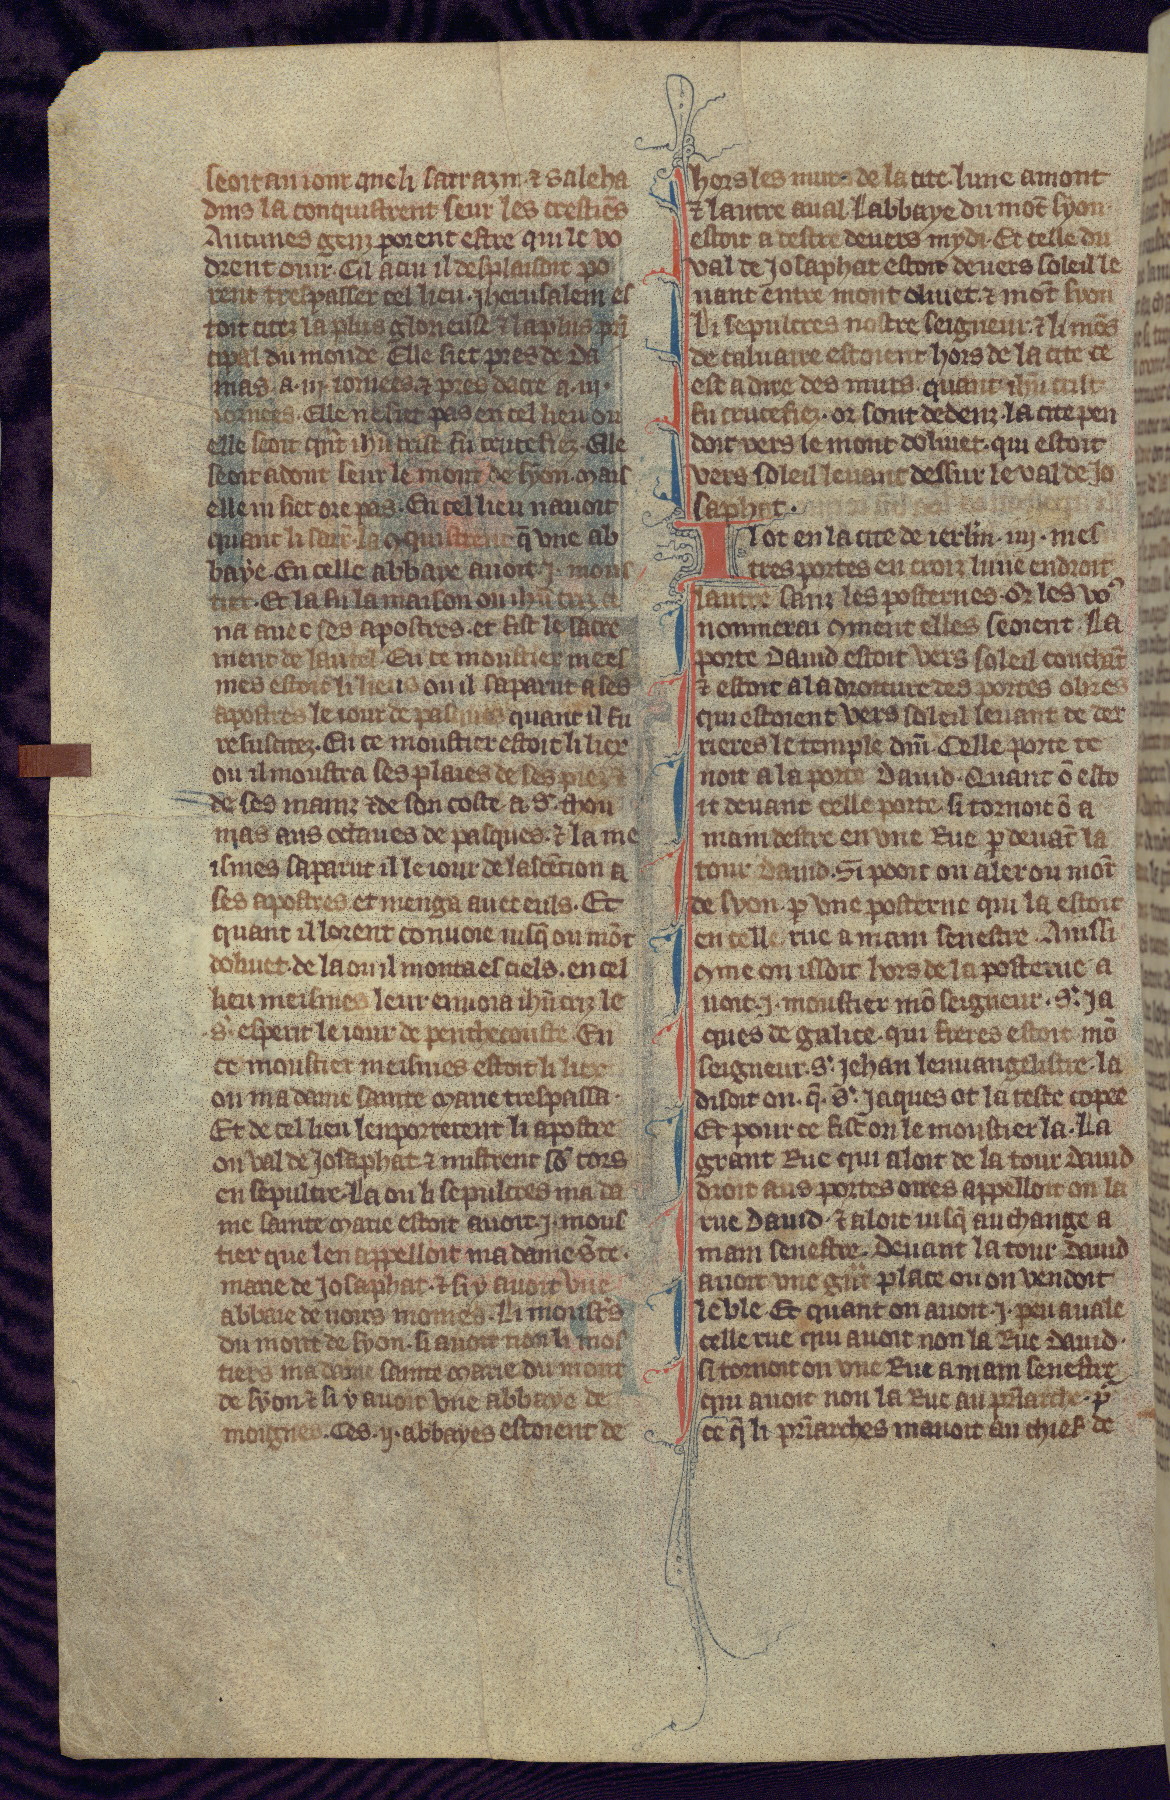 seoit au iour que li sarrazin ⁊ Saleha
dins la conquistrent seur les crestiēs
Aucunes genz porent estre qui le vo
drent ouir. Cil a cui il desplaisoit po
rent trespasser cel lieu. Jherusalem es
toit citez la plus glorieuse ⁊ la plus prī
cipal du monde. Elle siet pres de Da
mas .a .iij. iornees ⁊ pres dacre a .iij.
iornees. Elle ne siet pas en cel lieu ou
elle seoit qn̄t ih̄u crist fu crucefiez. Elle
seoit adont seur le mont de syon. mais
elle ni siet ore pas. En cel lieu nauoit
quant li sarr̄. la ɔquistrent q̄ vne ab
baye. En celle abbaye auoit .j. mous
tier. Et la fu la maison ou ih̄u criz ce
na auec ses apostres. et fist le sacre
ment de lautel. En ce moustier mees
mes estoit li lieus ou il saparut a ses
apostres le iour de pasques quant il fu
resuscitez. En ce moustier estoit li lier
ou il moustra ses plaies de ses piez ⁊
de ses mainz ⁊ de son coste a .S. thou
mas aus octaues de pasques. ⁊ la me
ismes saparut il le iour de lascēcion a
ses apostres et menga auec euls. Et
quant il lorent conuoie iusq̄ ou mōt
doliuet. de la ou il monta es ciels. en cel
lieu meismes leur enuoia ih̄u criz le
.S. esperit le iour de penthecouste. En
ce moustier meismes estoit li liex
ou ma dame sainte marie trespassa.
Et de cel lieu lenporterent li apostre
ou val de Josaphat ⁊ mistrent sō cors
en sepulcre. La ou li sepulcres ma da
me sainte marie estoit auoit .j. mous
tier que len appelloit ma dame S̄te.
marie de Josaphat. ⁊ si y auoit vne
abbaie de noirs moines. Li moust̄s
du mont de syon. si auoit non li mos
tiers ma dame sainte marie du mont
de syon ⁊ si y auoit vne abbaye de
moignes. Ces .ij. abbayes estoient de
hors les murs de la cite. lune amont
⁊ lautre aual. Labbaye du mōt syon
estoit a destre deuers mydi. Et celle du
val de Josaphat estoit deuers soleil le
uant entre mont oliuet. ⁊ mōt syon
Li sepulcres nostre seigneur. ⁊ li mōs
de caluaire estoient hors de la cite ce
est a dire des murs. quant ih̄u crist
fu crucefiez. or sont dedenz la cite pen
doit vers le mont doliuet. qui estoit
vers soleil leuant dessur le val de Jo
saphat.
Il ot en la cite de ierl̄m .iiij. mes
tres portes en croiz lune endroit
lautre sanz les posternes. Or les vo9
nommerai ɔment elles seoient. La
porte Dauid estoit vers soleil couchāt
⁊ estoit a la droiture des portes oires
qui estoient vers soleil leuant de der
rieres le temple dn̄i. Celle porte te
noit a la porte Dauid. Quant ō esto
it deuant celle porte. si tornoit ō a
main destre en vne Rue p deuāt la
tour dauid. Si pooit on aler ou mōt
de syon. p vne posterne qui la estoit
en celle rue a main senestre. Aussi
ɔme on issoit hors de la posterne a
uoit .j. moustier mō seigneur .S. Ja
ques de galice. qui freres estoit mō
seigneur .S. Jehan leuuangelistre. la
disoit on. q̄ .S. Jaques ot la teste copee
Et pour ce fist on le moustier la. La
grant Rue qui aloit de la tour dauid
droit aus portes oires appelloit on la
rue Dauid. ⁊ aloit iusq̄ au change a
main senestre. Deuant la tour Dauid
auoit vne gr̄t place ou on vendoit
le ble. Et quant on auoit .j. peu auale
celle rue qui auoit non la Rue dauid.
si tornoit on vne Rue a main senestre
qui auoit non la Rue au pr̄iarche. p
ce q̄ li pr̄iarches manoit au chief de